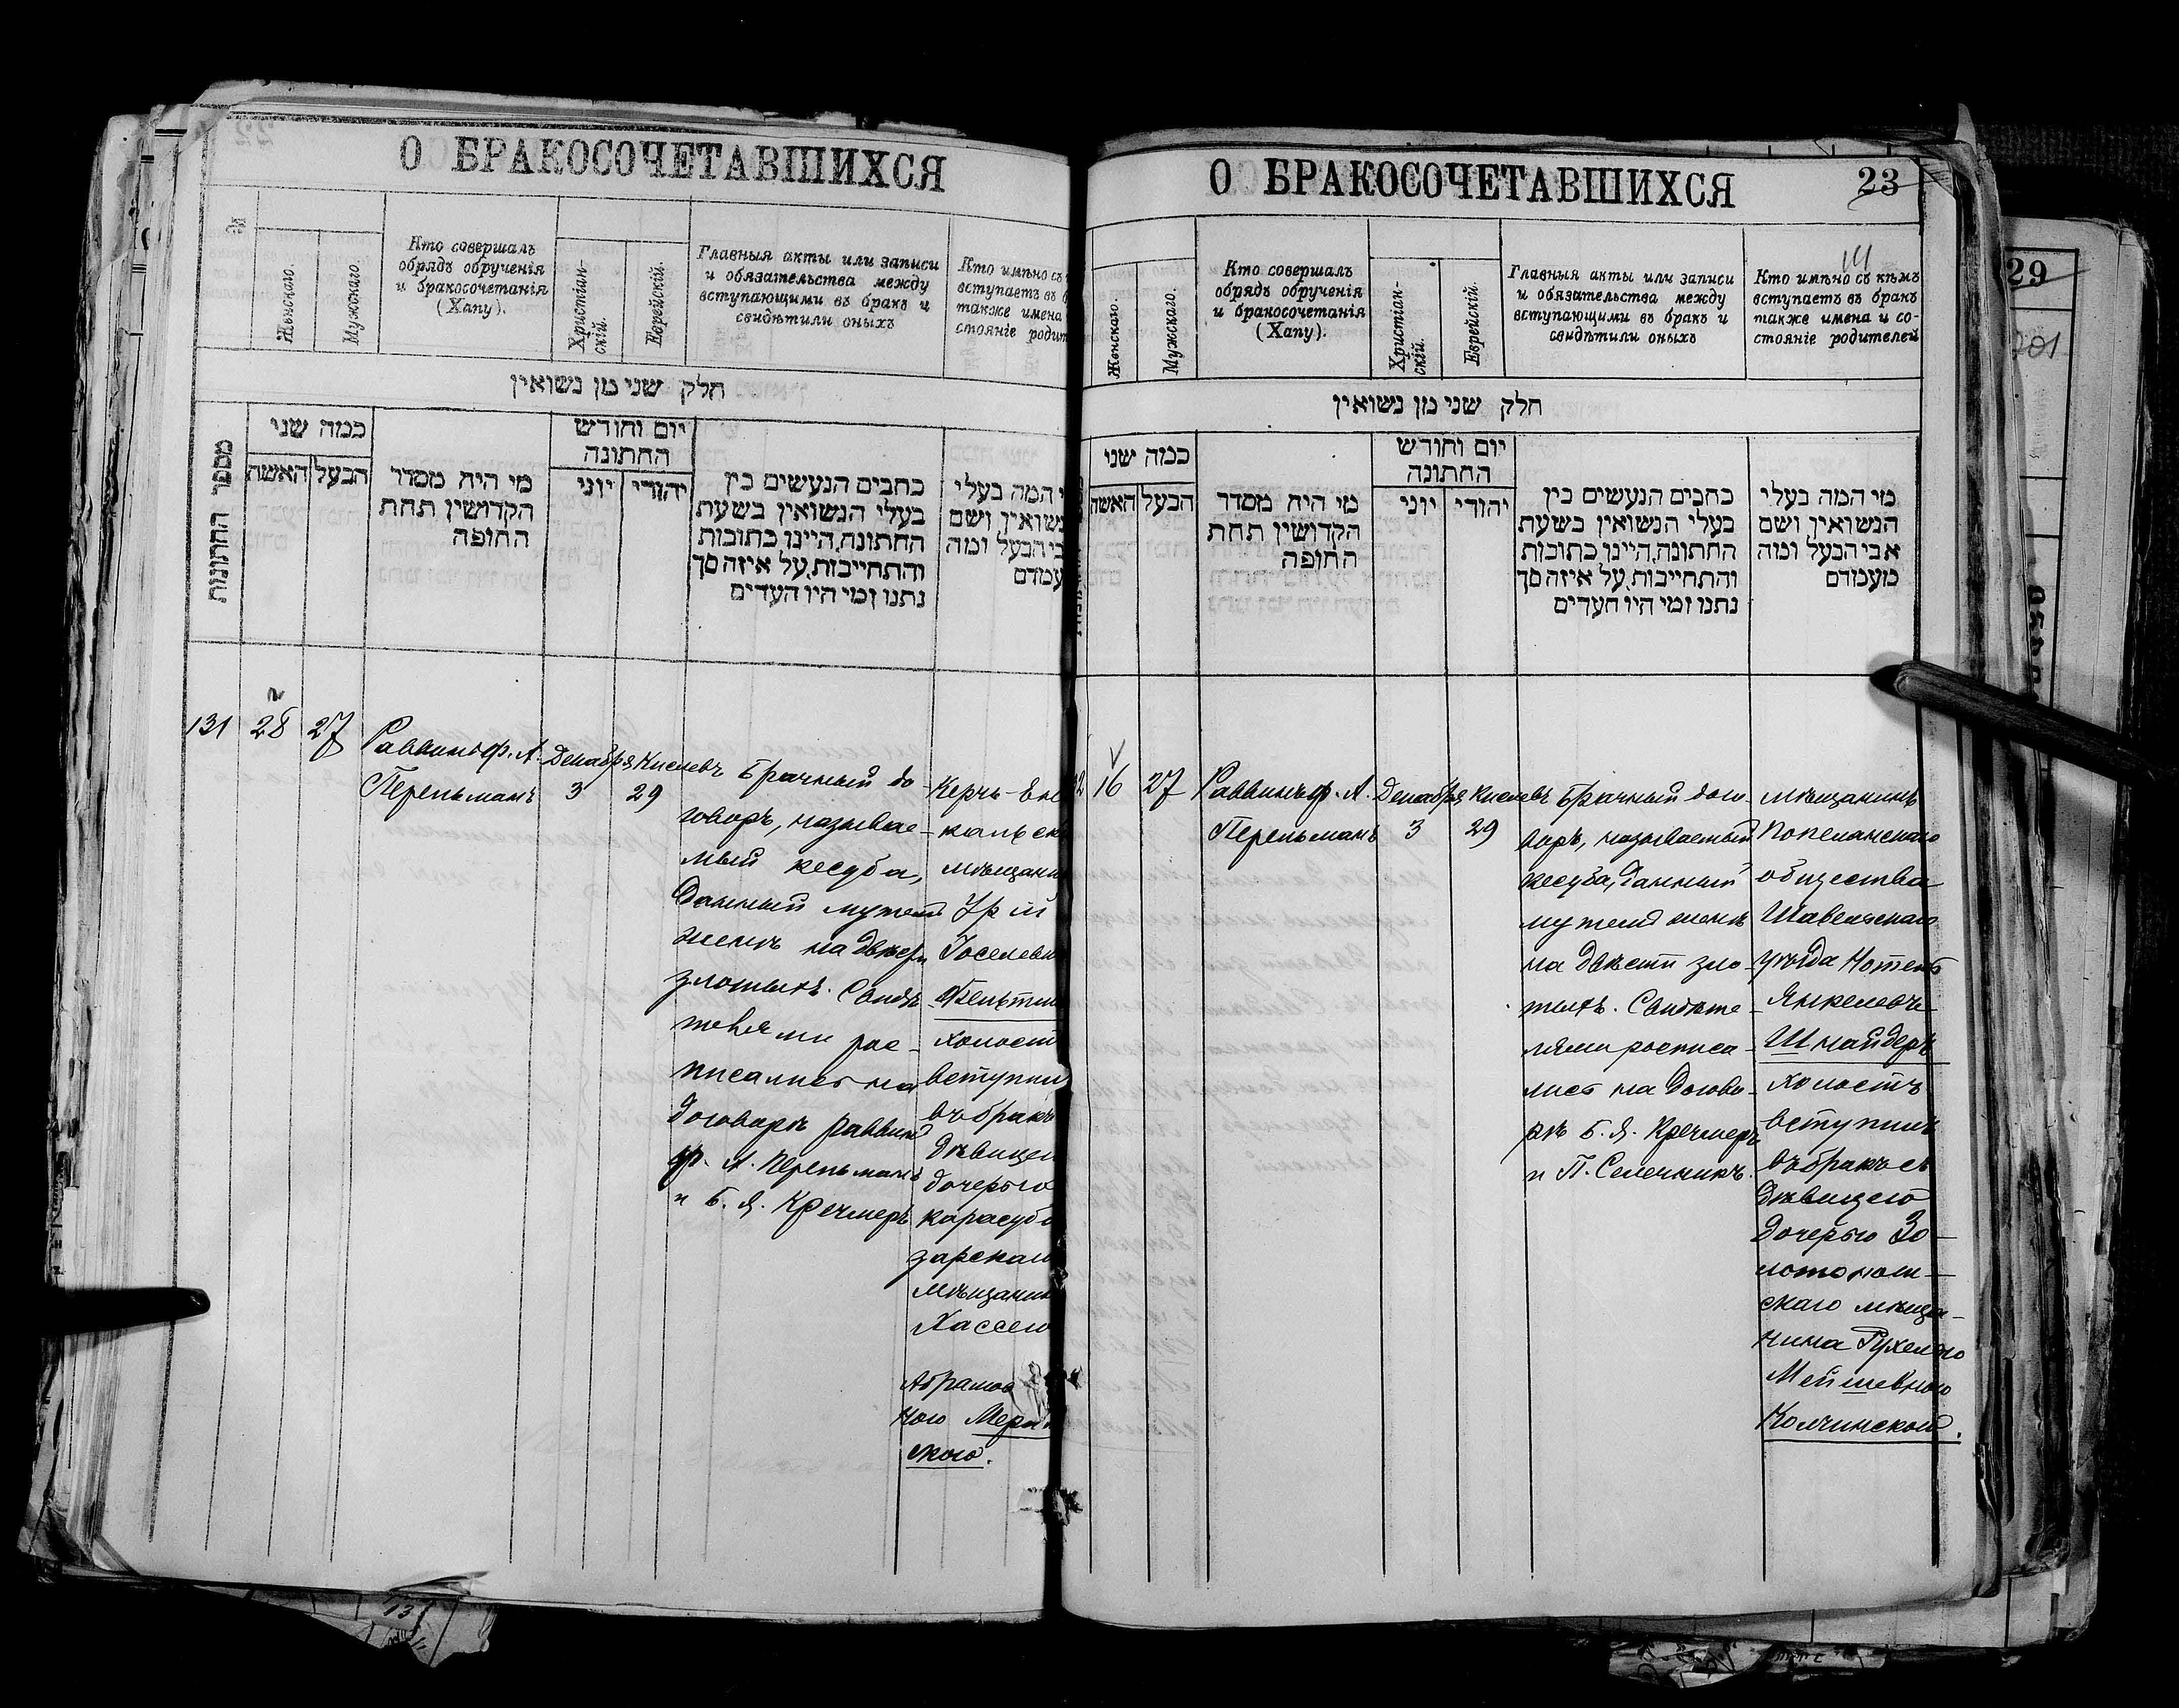 О БРАКОСОЧЕТАВШИХСЯ
№
Женскаго.
Мужскаго.
Кто совершалъ
обрядъ обрученія
и бракосочетанія
(Хапу).
Христіан-
скій.
Еврейскій.
Главныя акты или записи
и обязательства между
вступающими въ бракъ и
свидѣтили оныхъ
Кто имѣно съ
вступаетъ въ
также имена
стояніе родит
חלק שני מן נשואין
מספר החתונות
כמה שני
האשה
הבעל
מי היה מסדר
הקדושין תחת
החופה
יום וחודש
החתונה
יוני
יהודי
כתבים הנעשים בין
בעלי הנשואין בשעת
החתונה, היינו כתובות
והתחייבות, על איזה סך
נתנו ומי היו העדים
המה בעלי
נשואין ושם
בי הבעל ומה
עמדם
131
28
27
Раввинъ ф. А.
Перельманъ
Декабря
3
Кислевъ
29
Брачный до-
говоръ, называе-
мый кесуба,
данный мужемъ
женѣ на двѣсти
злотыхъ. Свидѣ
телями рос-
писались на
договорѣ раввинъ
ф. А. Перельманъ
и Б. Я. Кречмеръ
Керчь-Ени
кальскі
мѣщанин
Іоселеви
холост
вступил
въ бракъ
дѣвицей
дочерью
карасуба
зарскаго
мѣщанин
Хассею
Абрамов
ною
скою.
О БРАКОСОЧЕТАВШИХСЯ
23
Женскаго.
Мужскаго.
Кто совершалъ
обрядъ обрученія
и бракосочетанія
(Хапу).
Христіан-
скій.
Еврейскій.
Главныя акты или записи
и обязательства между
вступающими въ бракъ и
свидѣтили оныхъ
Кто имѣно съ кѣмъ
вступаетъ въ бракъ
также имена и со-
стояніе родителей
חלק שני מן נשואין
כמה שני
האשה
הבעל
מי היה מסדר
הקדושין תחת
החופה
יום וחודש
החתונה
יוני
יהודי
כתבים הנעשים בין
בעלי הנשואין בשעת
החתונה, היינו כתובות
והתחייבות, על איזה סך
נתנו ומי היו העדים
מי המה בעלי
הנשואין ושם
אבי הבעל ומה
מעמדם
16
27
Раввинъ ф. А.
Перельманъ
Декабря
3
Кислевъ
29
Брачный дого-
воръ, называемый
кесуба, данный
мужемъ женѣ
на двѣсти зло-
тыхъ. Свидѣте-
лями росписа-
лись на догово-
рѣ Б. Я. Кречмеръ
и П. Селечникъ.
мѣщанинъ
Попелянскаго
общества
Шавельскаго
уѣзда Нотель
Янкелевъ
Шнайдеръ
холостъ
вступилъ
въ бракъ съ
дѣвицею
дочерью Зо-
лотонош-
скаго мѣща-
нина Рухелью
Мейшевною
Колчинской.
29
201